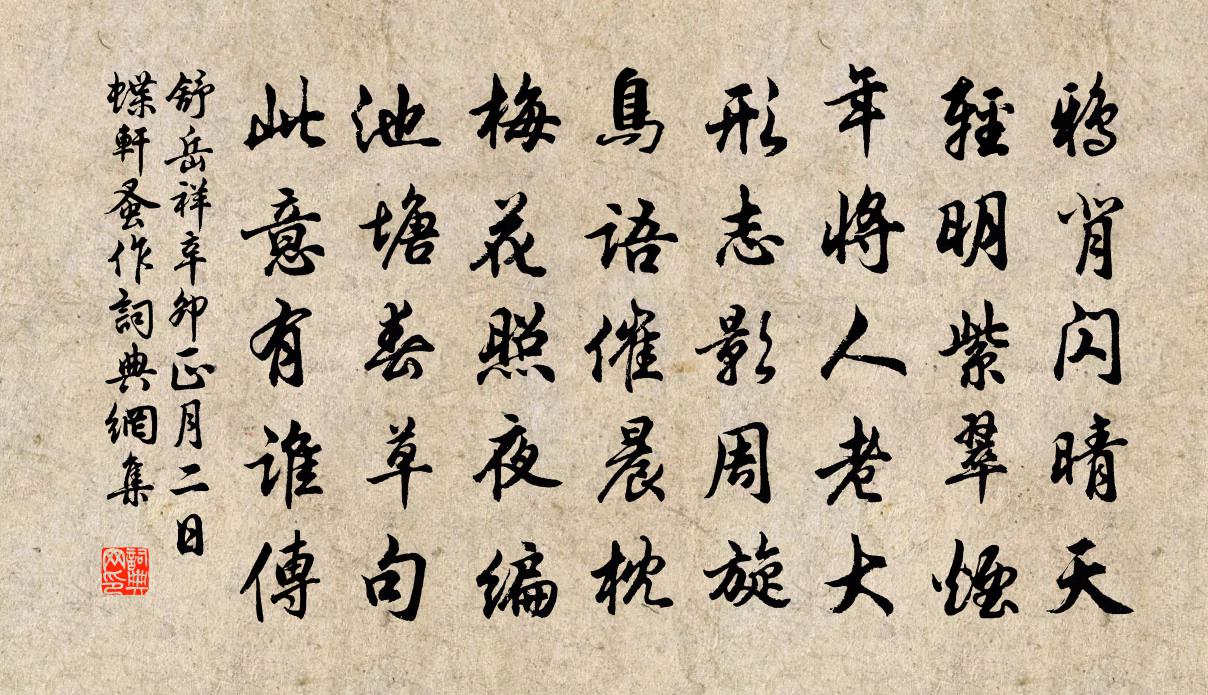 鴉背閃晴天
輕明紫翠煙
年將人老大
形志影周旋
鳥語催晨枕
梅花照夜編
池塘春草句
此意有誰傳
舒岳祥辛卯正月二日
蝶軒蚤作詞典網集
詞典网印